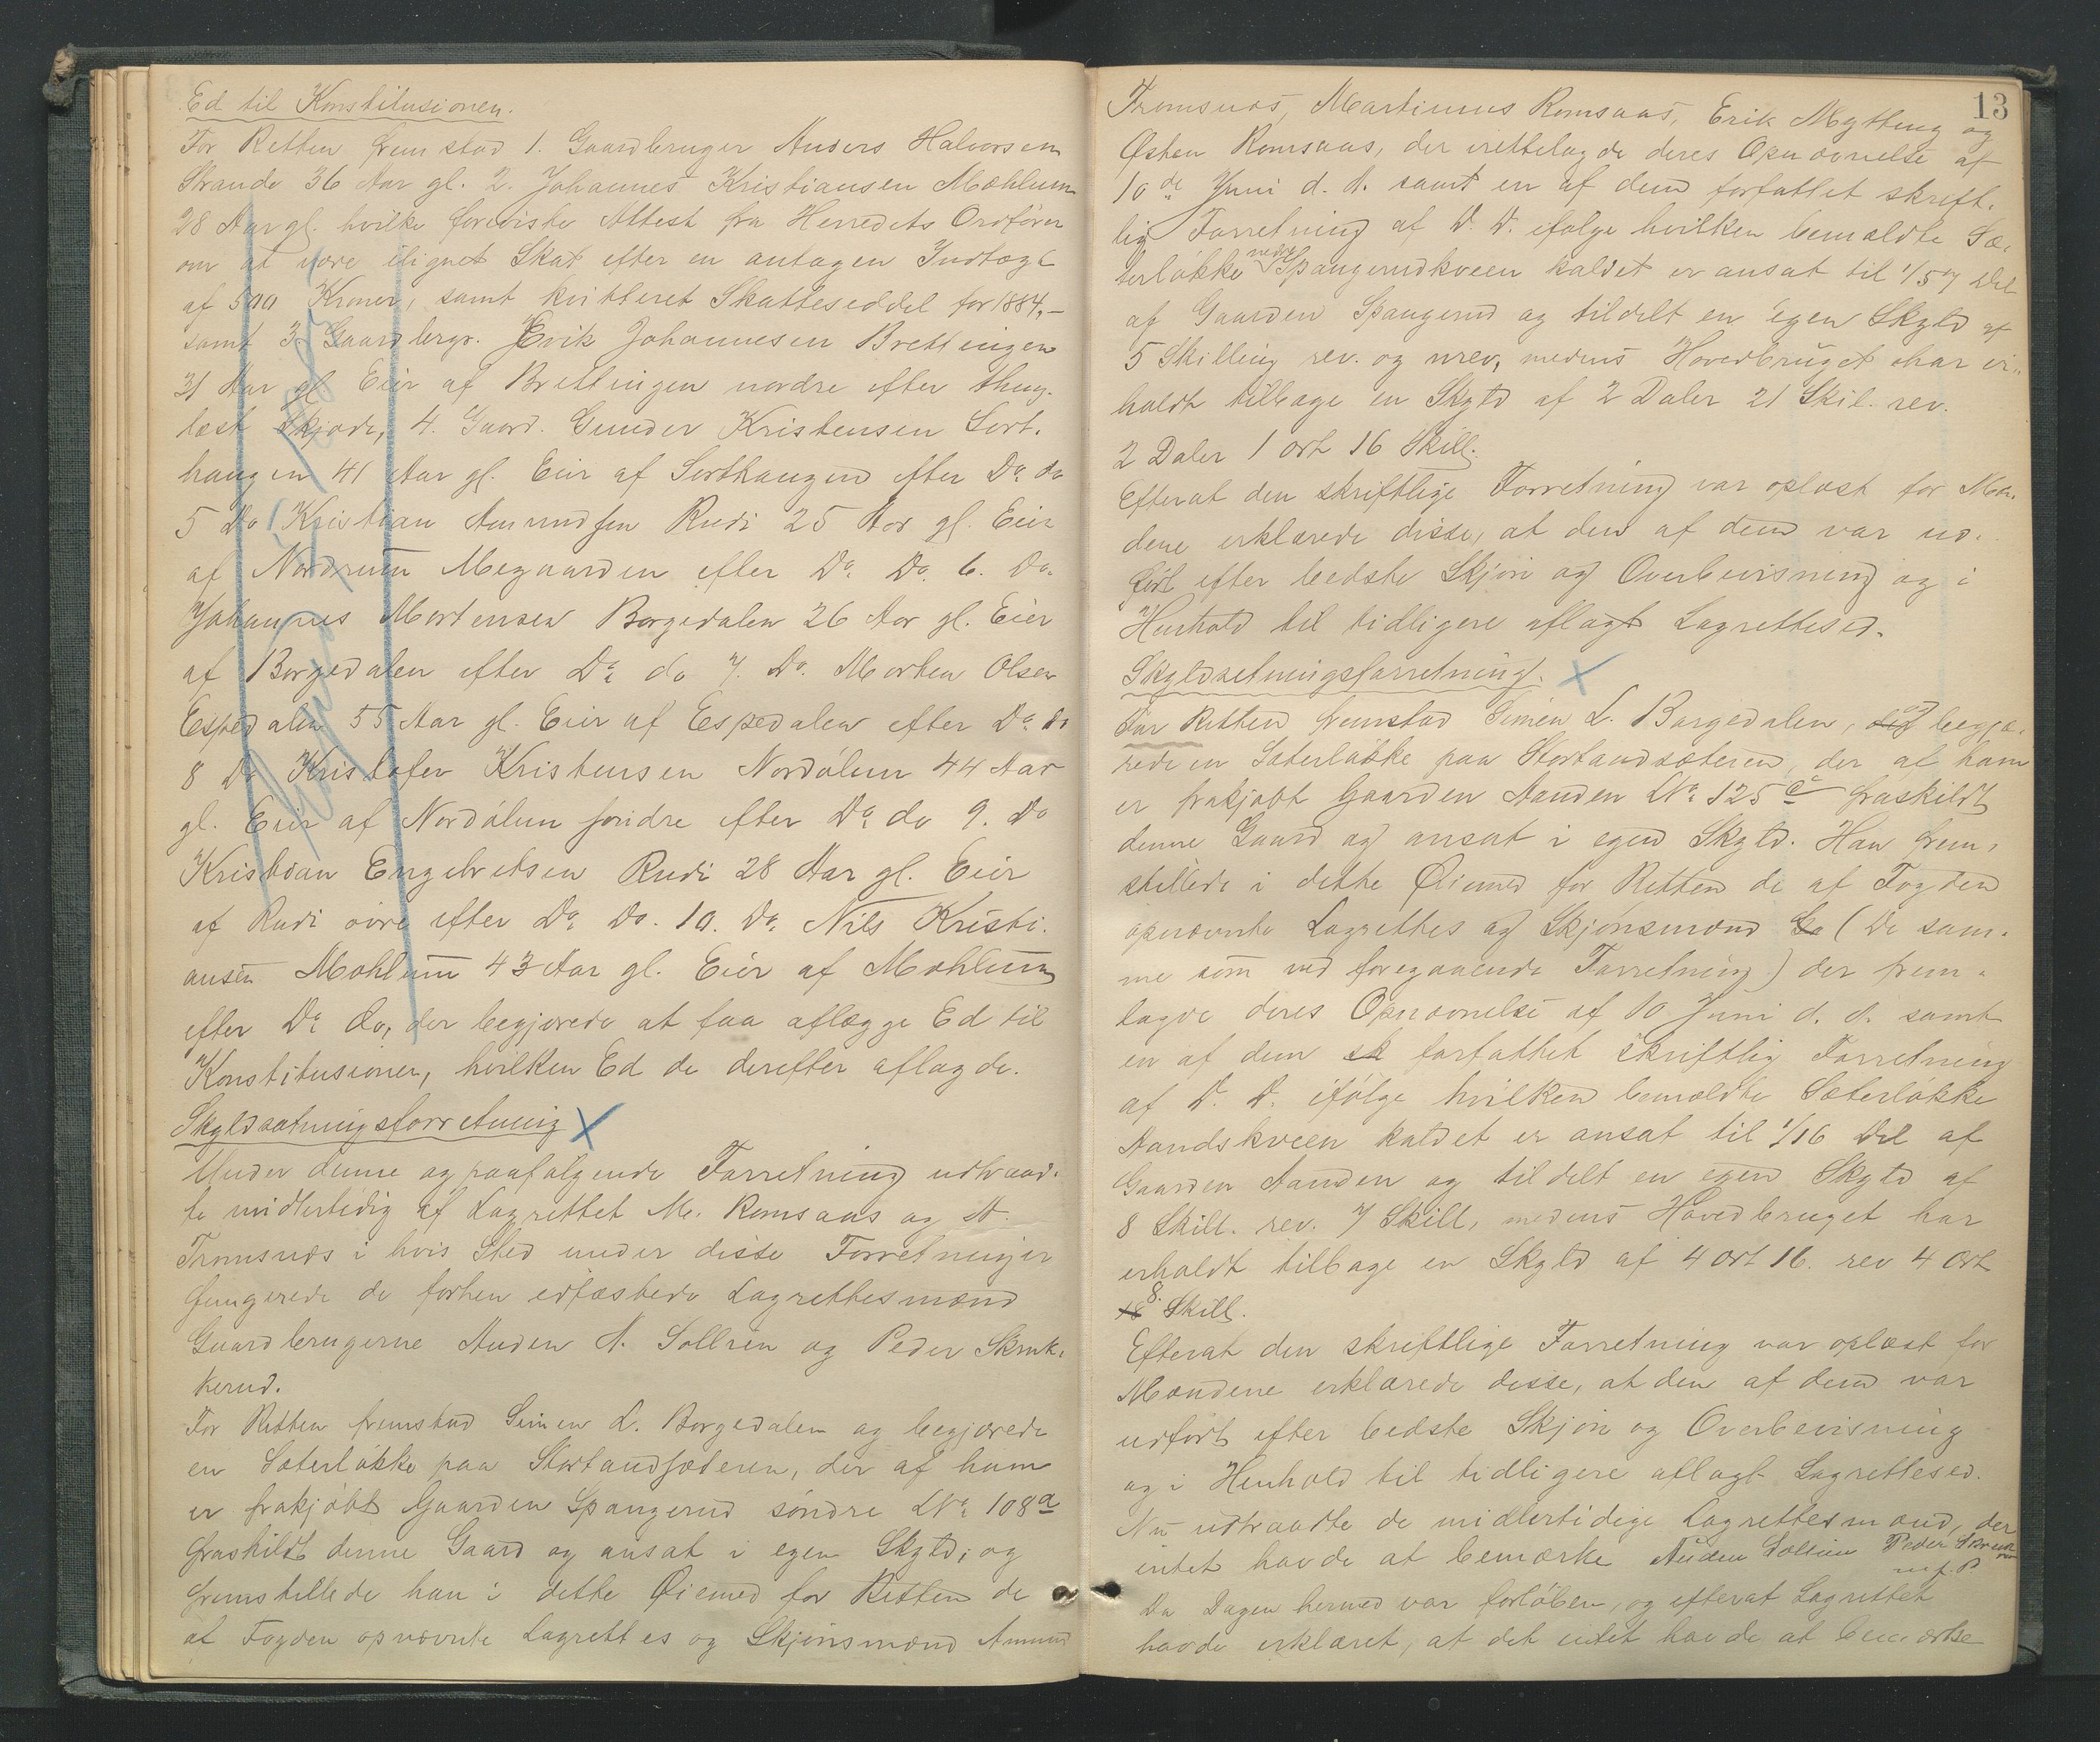 Ed til Konstitusionen.
For Retten fremstod 1. Gaardbruger Anders Halvorsen
Strande 36 Aar gl. 2. Johannes Kristiansen Mæhlum
28 Aar gl. hvilke foreviste Attest fra Herredets Ordfører
om at være ilignet Skat efter en antagen Indtægt
af 500 Kroner, samt kvitteret Skatteseddel for 1884,-
samt 3. Gaardbrgr. Erik Johannesen Brettingen
31 Aar gl Eier af Brettingen nordre efter thing-
læst Skjøde, 4. Gaard. Gunder Kristensen Sort-
haugen 41 Aar gl. Eier af Sorthaugen efter Do. do
5 Do Kristian Amundsen Rudi 25 Aar gl. Eier
af Nordrum Megaarden efter Do. Do. 6. Do.
Johannes Mortensen Borgedalen 26 Aar gl. Eier
af Borgedalen efter Do. do 7. Do. Morten Olsen
Espedalen 55 Aar gl. Eier af Espedalen efter Do. do
8 Do Kristofer Kristensen Nordølum 44 Aar
gl. Eier af Nordølum søndre efter Do. do 9. Do
Kristian Engebretsen Rudi 28 Aar gl. Eier
af Rudi øvre efter Do. Do. 10. Do. Nils Kristi-
ansen Mæhlum 43 Aar gl. Eier af Mæhlum
efter Do. do, der begjærede at faa aflægge Ed til
Konstitusionen, hvilken Ed de derefter aflagde.
Skyldsætningsforretning X
Under denne og paafølgende Forretning udtraad-
te midlertidig af Lagrettet M. Romsaas og A.
Tromsnæs i hvis Sted under disse Forretninger
fungerede de forhen edfæstede Lagrettesmænd
Gaardbrugerne Auden A. Sollien og Peder Skruk-
kerud.
For Retten fremstod Simen L. Borgedalen og begjærede
en Sæterløkke paa Stortandsæteren, der af ham
er frakjøbt Gaarden Spangerud søndre LNo. 108a
fraskildt denne Gaard og ansat i egen Skyld; og
fremstillede han i dette Øiemed for Retten de
af Fogden opnævnte Lagrettes og Skjønsmænd Amund
13
Tromsnæs, Martinus Romsaas, Erik Mytting og
Østen Romsaas, der irettelagde deres Opnævnelse af
10de Juni d. A. samt en af dem forfattet skrift-
lig Forretning af D. D. ifølge hvilken bemældte Sæ-
terløkke nedre Spangerudkveen kaldet er ansat til 1/57 Del
af Gaarden Spangerud og tildelt en egen Skyld af
5 Skilling rev. og urev, medens Hovedbruget har er-
holdt tilbage en Skyld af 2 Daler 21 Skil. rev.
2 Daler 1 ort 16 Skill.
Efterat den skriftlige Forretning var oplæst for Mæn-
dene erklærede disse, at den af dem var ud-
ført efter bedste Skjøn og Overbevisning og i
Henhold til tidligere aflagt Lagrettesed.
Skyldsetningsforretning. X
For Retten fremstod Simen L. Borgedalen, og begjæ-
rede en Sæterløkke paa Stortandsæteren, der af ham
er frakjøbt Gaarden Aanden LNo. 125c fraskildt
denne Gaard og ansat i egen Skyld. Han frem-
stillede i dette Øiemed for Retten de af Fogden
opnævnte Lagrettes og Skjønsmænd (De sam-
me som ved foregaaende Forretning) der frem-
lagde deres Opnævnelse af 10 Juni d. A. samt
en af dem sk forfattet skriftlig Forretning
af D. D. ifølge hvilken bemældte Sæterløkke
Aandskveen kaldet er ansat til 1/16 Del af
Gaarden Aanden og tildelt en egen Skyld af
8 Skill. rev. 7 Skill, medens Hovedbruget har
erholdt tilbage en Skyld af 4 Ort 16. rev 4 Ort
18 8. Skill.
Efterat den skriftlige Forretning var oplæst for
Mændene erklærede disse, at den af dem var
udført efter bedste Skjøn og Overbevisning
og i Henhold til tidligere aflagt Lagrettesed.
Nu udtraadte de midlertidige Lagrettesmænd, der
intet havde at bemærke Auden Sollien Peder
m. f. P
Da Dagen hermed var forløben, og efterat Lagrettet
havde erklæret, at det intet havde at bemærke